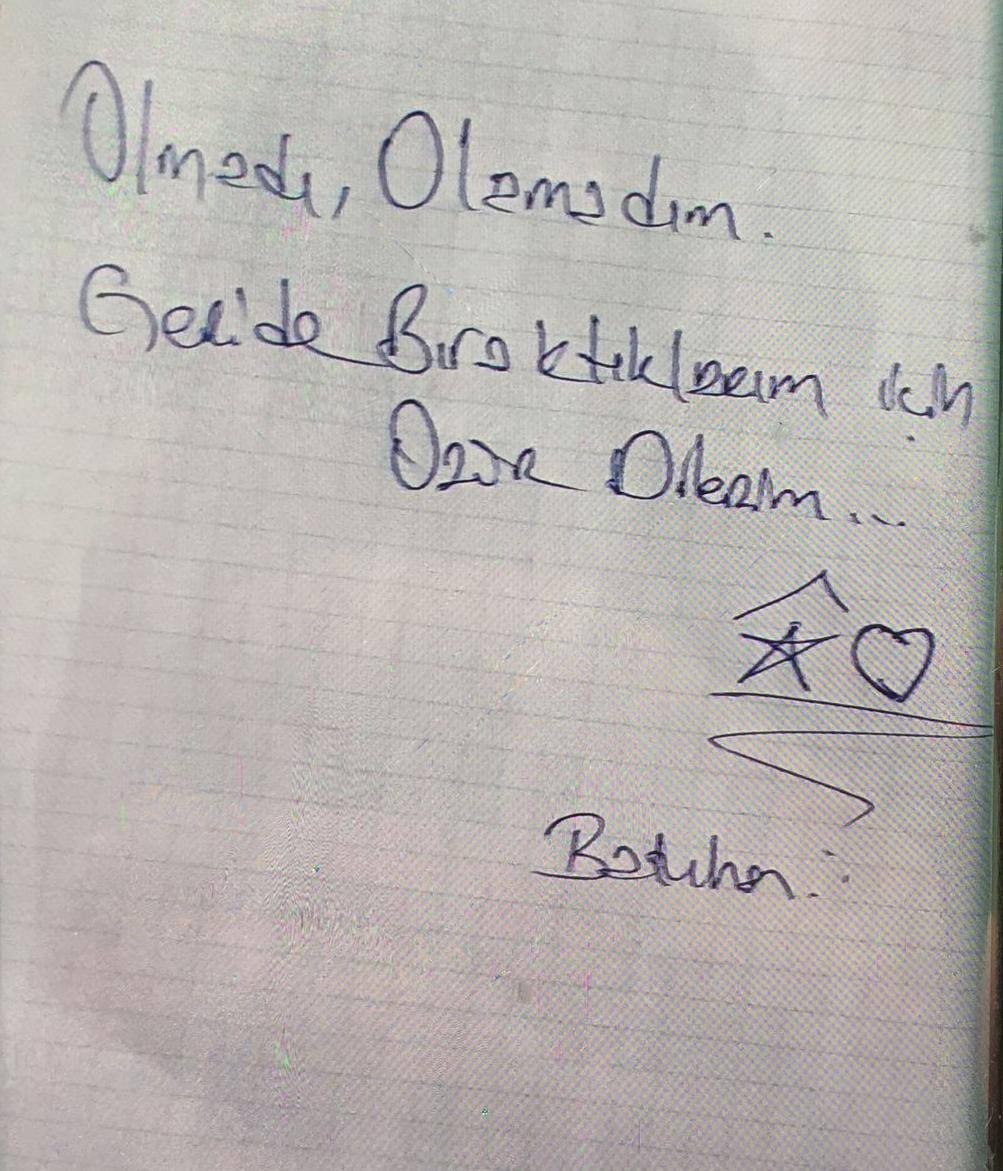 Olmadı, Olamadım.
Geride Bıraktıklarım için
Özür Dilerim...
Batuhan